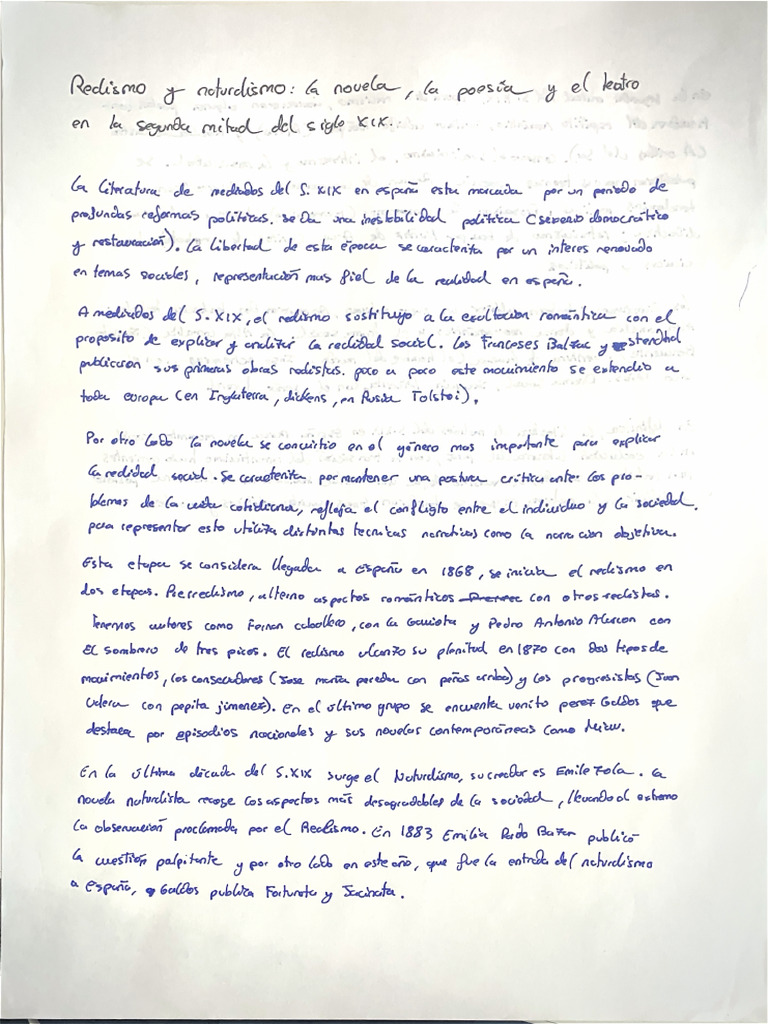 Realismo y naturalismo: la novela, la poesía y el teatro
en la segunda mitad del siglo XIX.
La literatura de mediados del S. XIX en españa esta marcada por un periodo de
profundas reformas politicas. se da una inestabilidad politica (sexenio democratico
y restauración). La libertad de esta época se caracteriza por un interes renovado
en temas sociales, representación mas fiel de la realidad en españa.
A mediados del S. XIX, el realismo sustituyo a la exaltacion romántica con el
proposito de explicar y analizar la realidad social. Los Franceses Balzac y stendhal
publicaron sus primeras obras realistas. poco a poco este movimiento se extendio a
toda europa (en Inglaterra, dickens, en Rusia Tolstoi).
Por otro lado la novela se convirtio en el género mas importante para explicar
la realidad social. Se caracteriza por mantener una postura crítica ante los pro-
blemas de la vida cotidiana, refleja el conflicto entre el individuo y la sociedad.
para representar esto utiliza distintas tecnicas narrativas como la narracion objetiva.
Esta etapa se considera llegada a España en 1868, se inicia el realismo en
dos etapas. Prerrealismo, alterno aspectos románticos con otros realistas.
Tenemos autores como Fernan caballero, con la Gaviota y Pedro Antonio Alarcon con
El sombrero de tres picos. El realismo alcanzo su plenitud en 1870 con dos tipos de
movimientos, los conservadores (Jose maría pereda con peñas arriba) y los progresistas (Juan
Valera con pepita jimenez). En el último grupo se encuentra venito perez Galdos que
destaca por episodios nacionales y sus novelas contemporáneas como
En la última década del S. XIX surge el Naturalismo, su creador es Emile Zola. la
novela naturalista recoge los aspectos más desagradables de la sociedad, llevando al extremo
la observación proclamada por el Realismo. En 1883 Emilia Pardo Bazan publicó
la cuestión palpitante y por otro lado en este año, que fue la entrada del naturalismo
a España, Galdos publica Fortunata y Jacinata.